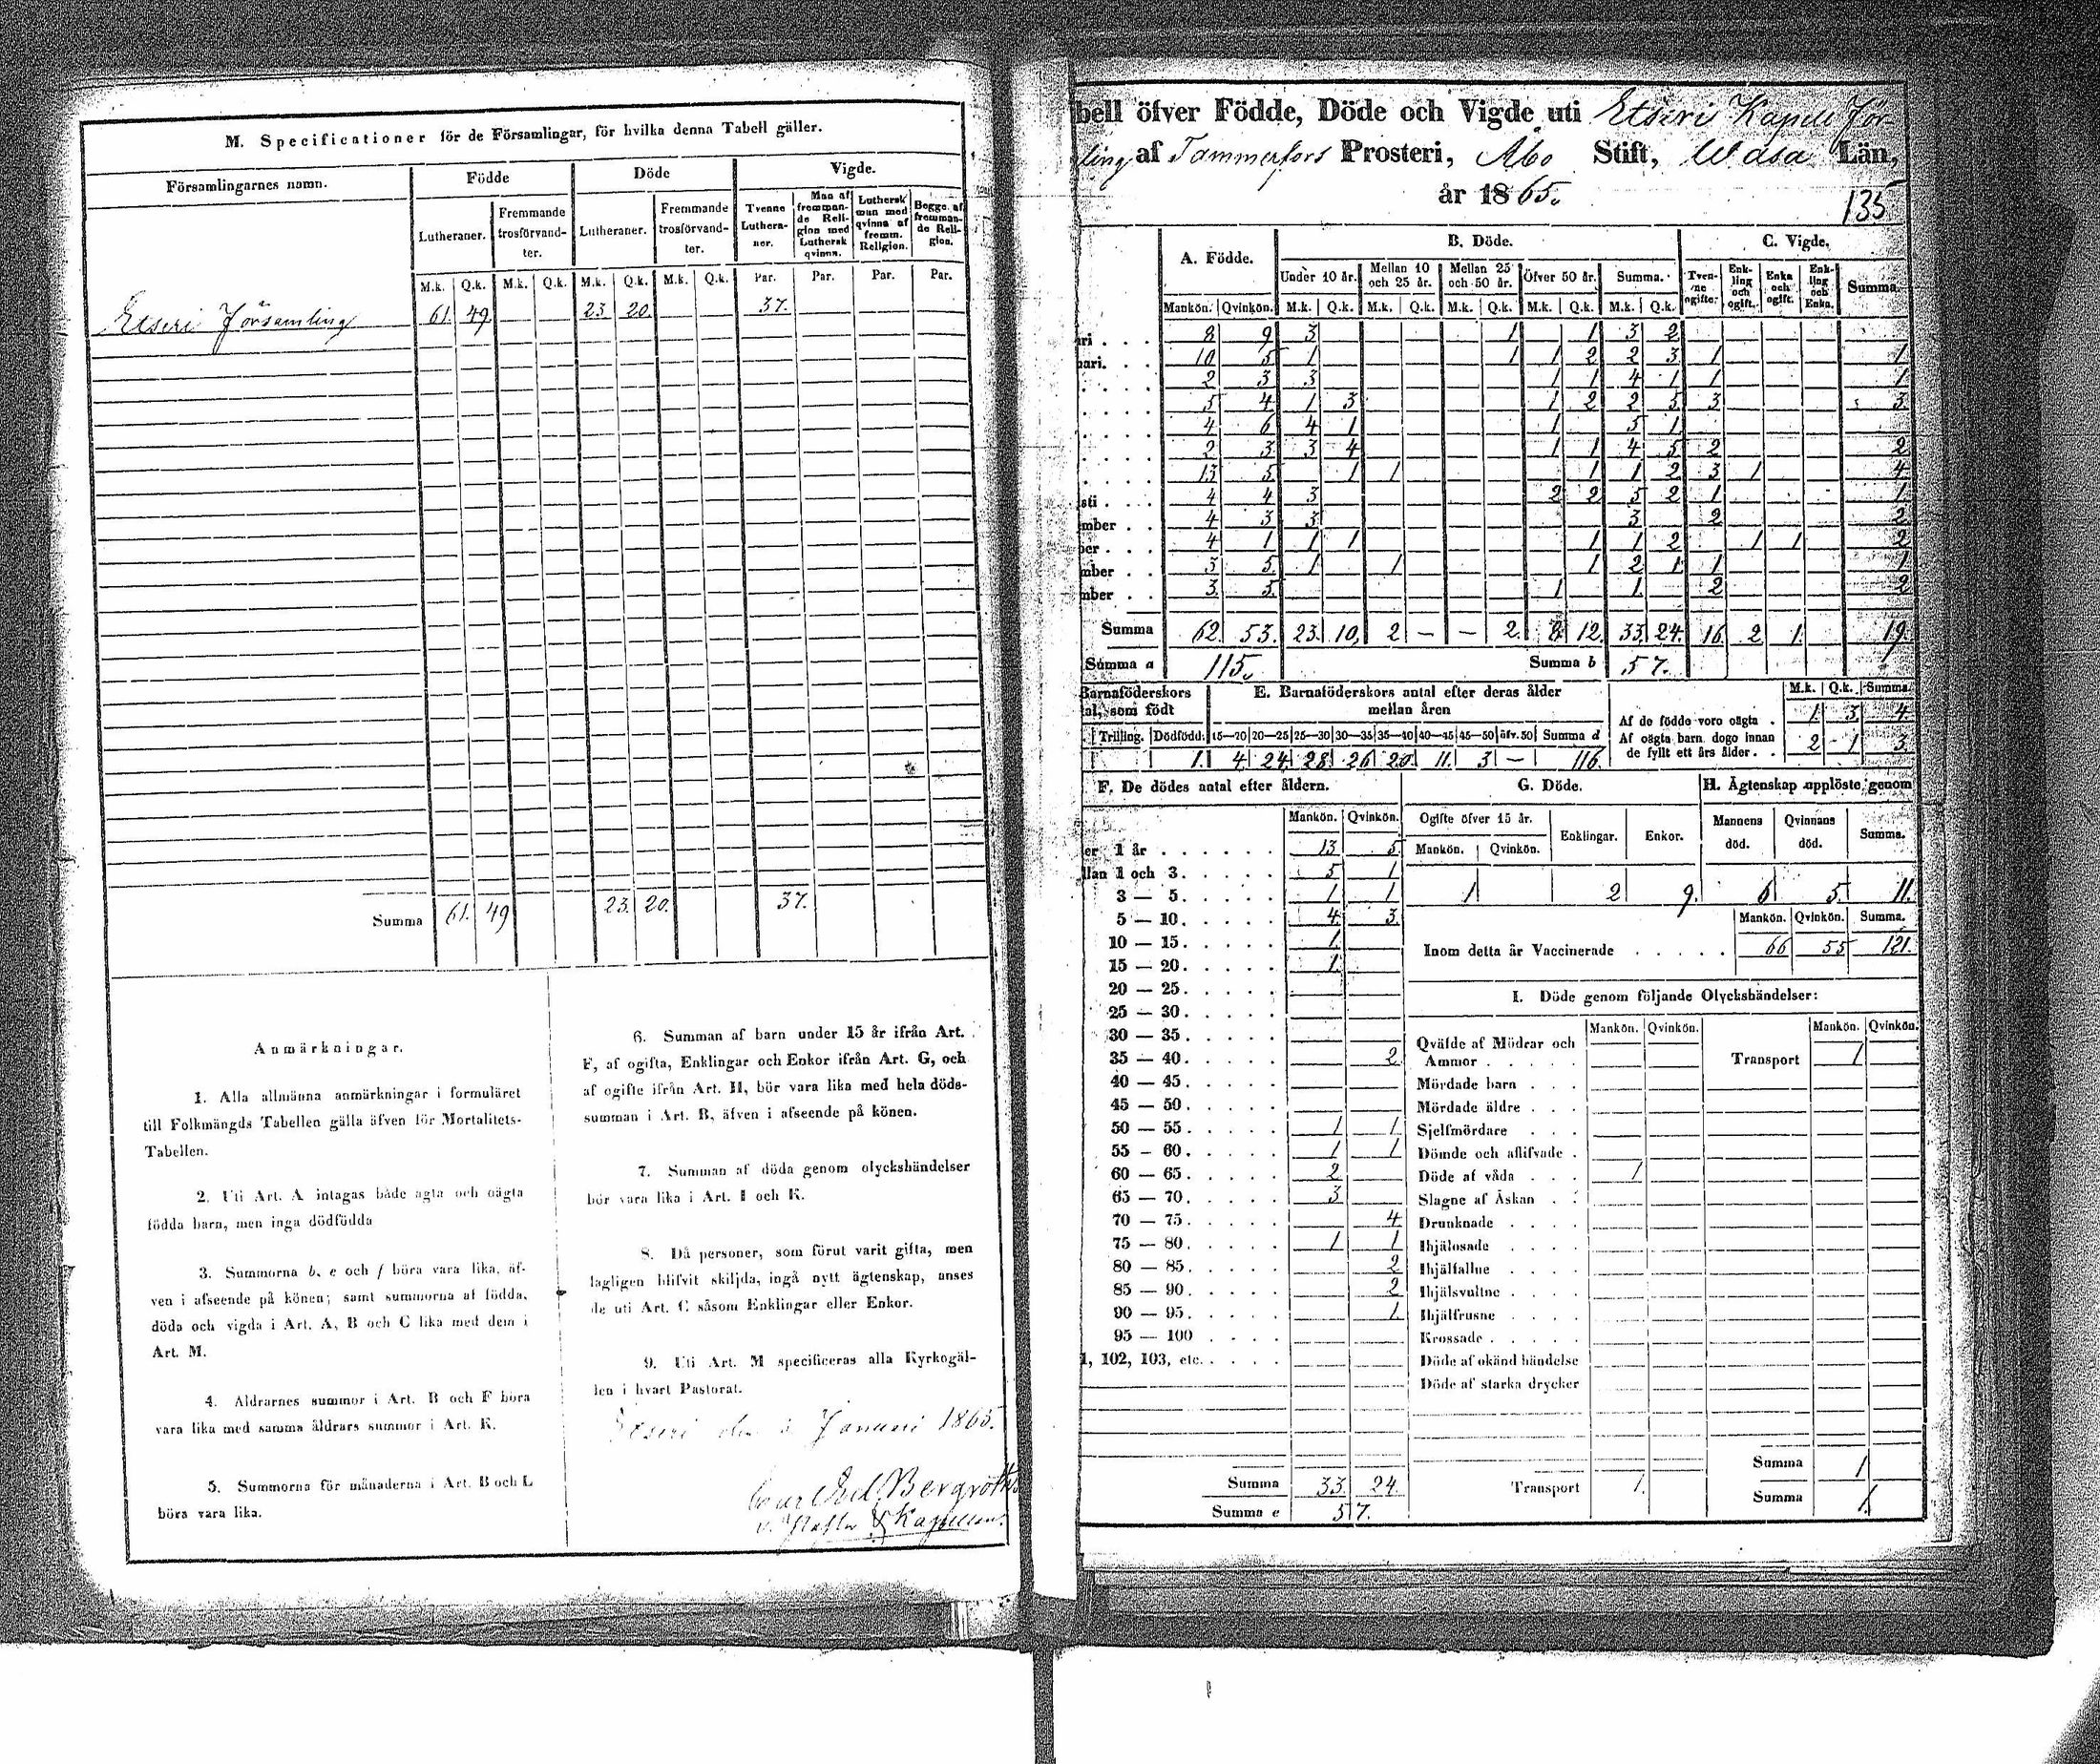 M. Specificationer för de Församlingar, för hvilka denna Tabell gäller.
Församlingarnes namn. Födde Döde Vigde.
Lutheraner. Fremmande trosförvandter. Lutheraner. Fremmande trosförvandter. Tvenne Lutheraner. Man af fremmande Religion med Luthersk qvinna. Luthersk man med qvinna af fremm. Religion. Begge af fremmande Religion.
M.k. Q.k. M.k. Q.k. M.k. Q.k. M.k. Q.k. Par. Par. Par. Par.
Etseri Församling 61. 49 23 20. 37.
Summa 61. 49 23. 20. 37.
Anmärkningar.
1. Alla allmänna anmärkningar i formuläret
till Folkmängds Tabellen gälla äfven för Mortalitets-
Tabellen.
2. Uti Art. A intagas både ägta och oägta
födda barn, men inga dödfödda
3. Summorna b, e och f böra vara lika, äf-
ven i afseende på könen; samt summorna af födda,
döda och vigda i Art. A, B och C lika med dem i
Art. M.
4. Åldrarnes summor i Art. B och F böra
vara lika med samma åldrars summor i Art. K.
5. Summorna för månaderna i Art. B och L
böra vara lika.
6. Summan af barn under 15 år ifrån Art.
F, af ogifta, Enklingar och Enkor ifrån Art. G, och
af ogifte ifrån Art. H, bör vara lika med hela döds-
summan i Art. B, äfven i afseende på könen.
7. Summan af döda genom olyckshändelser
bör vara lika i Art. I och K.
8. Då personer, som förut varit gifta, men
lagligen blifvit skiljda, ingå nytt ägtenskap, anses
de uti Art. C såsom Enklingar eller Enkor.
9. Uti Art. M specificeras alla Kyrkogäl-
len i hvart Pastorat.
Etseri den Januari 1865.
Carl Ed. Bergroth
v. Pastor & Kapellan.
bell öfver Födde, Döde och Vigde uti Etseri Kapell För-
ling af Tammerfors Prosteri, Åbo Stift, Wasa Län,
år 1865.
135
A. Födde. B. Döde. C. Vigde.
Under 10 år. Mellan 10 och 25 år. Mellan 25 och 50 år. Öfver 50 år. Summa. Tvenne ogifte. Enkling och ogift. Enka och ogift. Enkling och Enka. Summa.
Mankön. Qvinkön. M.k. Q.k. M.k. Q.k. M.k. Q.k. M.k. Q.k. M.k. Q.k.
ri . . . 8 9 3 1 1 3 2
ari. . . 10 5 1 1 1 2 2 3 1 1
. . . . 2 3 3 1 1 4 1 1 1
. . . . 5 4 1 3 1 2 2 5 3 3
. . . . 4 6 4 1 1 5 1
. . . . 2 3 3 4 1 1 4 5 2 2
. . . . 13 5 1 1 1 1 2 3 1 4
sti . . . 4 4 3 2 2 5 2 1 1
mber . . 4 3 3 3 2 2
ber . . . 4 1 1 1 1 1 2 1 1 2
mber . . 3 5 1 1 1 2 1 1 1
mber . . 3 5 1 1 2 2
Summa 62. 53. 23. 10, 2 – – 2. 8 12. 33. 24. 16 2 1. 19.
Summa a 115. Summa b 57.
Barnaföderskors
tal, som födt
Trilling. Dödfödd.
1.
E. Barnaföderskors antal efter deras ålder
mellan åren
15—20 20—25 25—30 30—35 35—40 40—45 45—50 öfv. 50 Summa d
4 24 28 26 20 11. 3 – 116.
M.k. Q.k. Summa.
Af de födde voro oägta . 1. 3. 4.
Af oägta barn dogo innan
de fyllt ett års ålder . . 2 1 3.
F. De dödes antal efter åldern.
Mankön. Qvinkön.
er 1 år . . . . . . 13 5
llan 1 och 3 . . . . . 5 1
3 — 5. . . . . 1 1
5 — 10. . . . . 4. 3.
10 — 15. . . . . 1.
15 — 20. . . . . 1.
20 — 25. . . . .
25 — 30. . . . .
30 — 35. . . . .
35 — 40. . . . . 2
40 — 45. . . . .
45 — 50. . . . .
50 — 55. . . . . 1 1
55 — 60. . . . . 1 1
60 — 65. . . . . 2
65 — 70. . . . . 3
70 — 75. . . . . 4
75 — 80. . . . . 1 1
80 — 85. . . . . 2
85 — 90. . . . . 2
90 — 95. . . . . 1.
95 — 100 . . . .
1, 102, 103, etc. . . . .
Summa 33. 24.
Summa e 57.
G. Döde.
Ogifte öfver 15 år. Enklingar. Enkor.
Mankön. Qvinkön.
1 2 9.
H. Ägtenskap upplöste genom
Mannens död. Qvinnans död. Summa.
6 5. 11.
Mankön. Qvinkön. Summa.
Inom detta år Vaccinerade . . . . . 66 55 121.
I. Döde genom följande Olyckshändelser:
Mankön. Qvinkön. Mankön. Qvinkön.
Qväfde af Mödrar och
Ammor . . . . . Transport 1
Mördade barn . . .
Mördade äldre . . .
Sjelfmördare . . .
Dömde och aflifvade .
Döde af våda . . . 1
Slagne af Åskan . .
Drunknade . . . .
Ihjälosade . . . .
Ihjälfallne . . . .
Ihjälsvultne . . . .
Ihjälfrusne . . . .
Krossade . . . . .
Döde af okänd händelse
Döde af starka drycker
Summa 1
Transport 1. Summa 1.